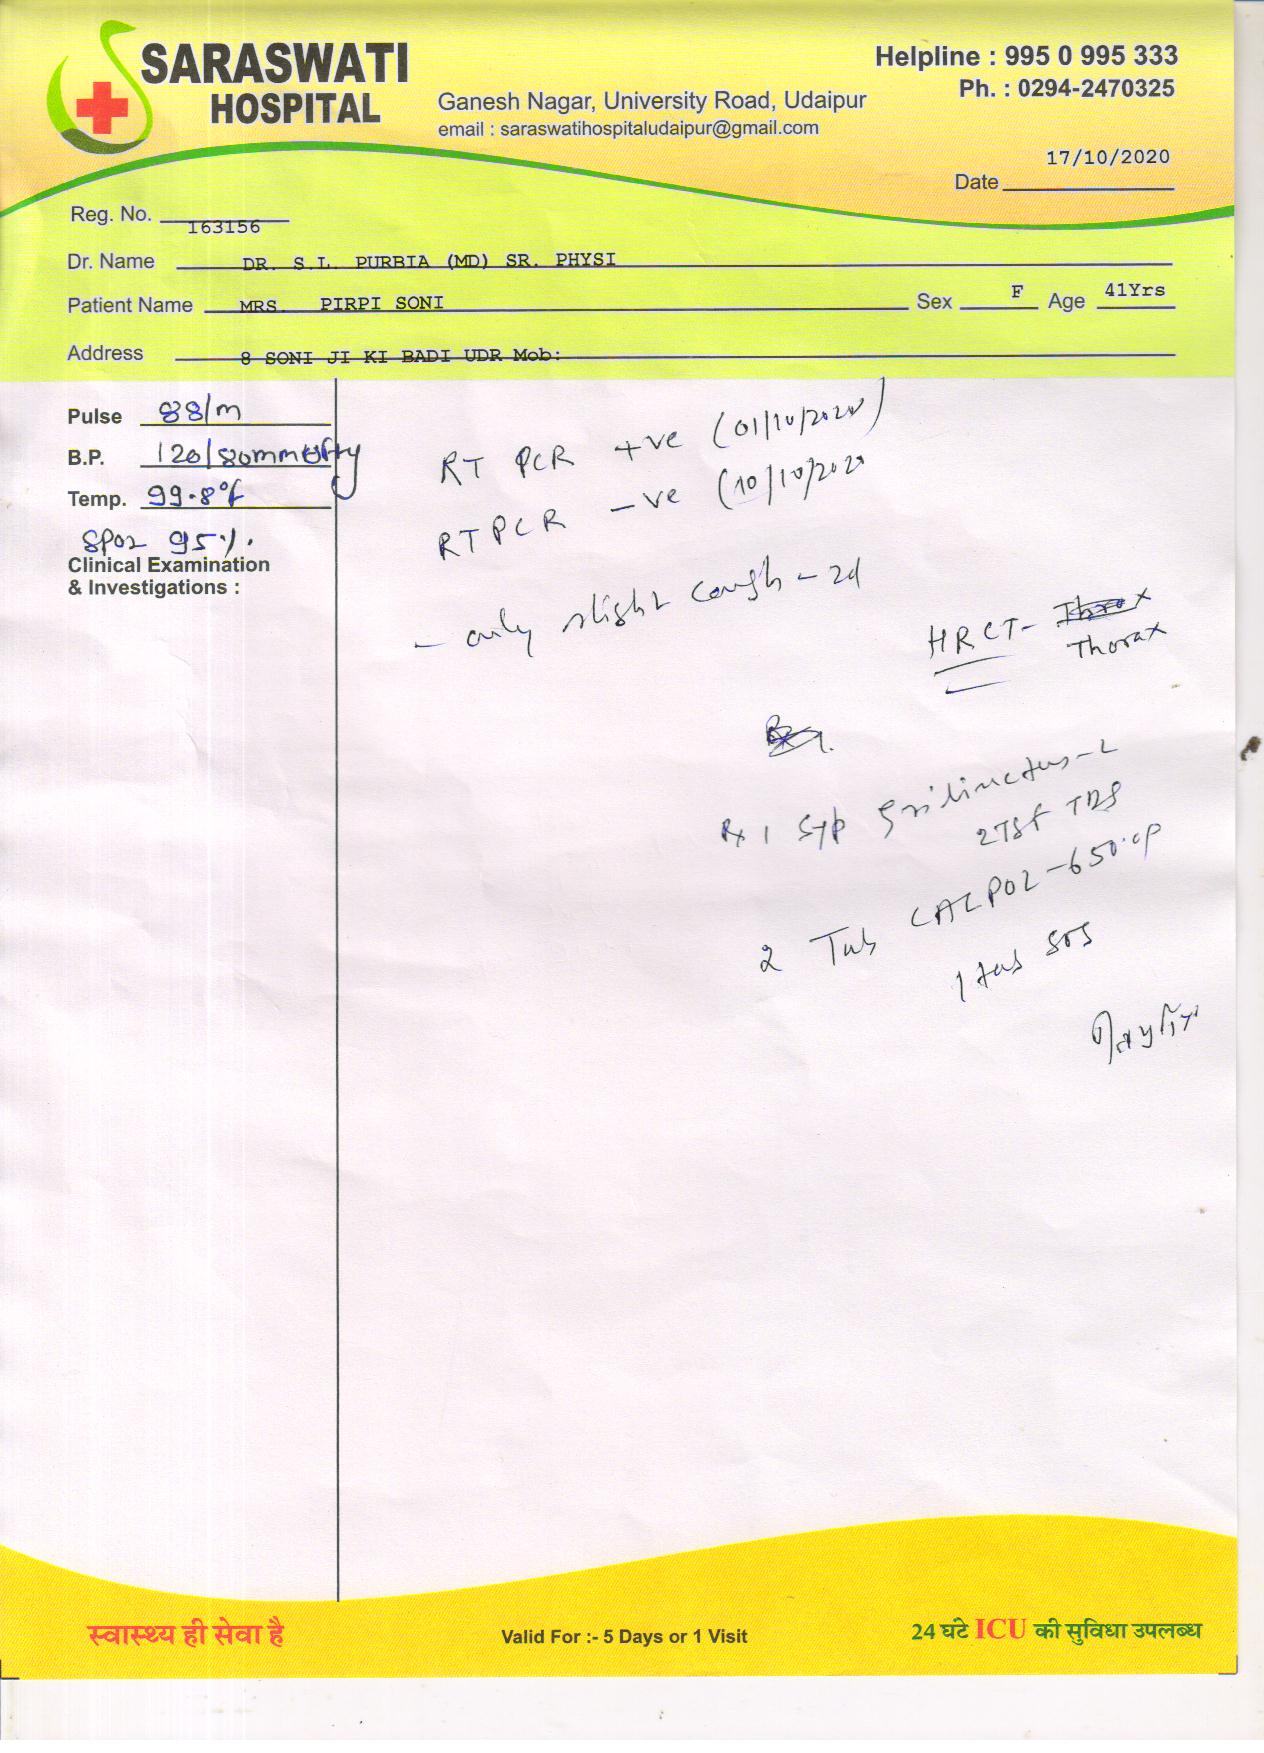 SARASWATI
HOSPITAL
Ganesh Nagar, University Road, Udaipur
email : saraswatihospitaludaipur@gmail.com
Helpline : 995 0 995 333
Ph. : 0294-2470325
Date 17/10/2020
Reg. No. 163156
Dr. Name DR. S.L. PURBIA (MD) SR. PHYSI
Patient Name MRS. PIRPI SONI Sex F Age 41Yrs
Address 8 SONI JI KI BADI UDR Mob:
Pulse 88/m
B.P. 120/80mmofHg
Temp. 99.8°f
SPO2 95%.
Clinical Examination
& Investigations :
RT PCR +ve (01/10/2020)
RTPCR -ve (10/10/2020
- only slight cough - 2d
HRCT-
Thorax
Rx 1 Syp
2TSF TDS
2 Tab CALPOL-650
1 tab SOS
स्वास्थ्य ही सेवा है
Valid For :- 5 Days or 1 Visit
24 घंटे ICU की सुविधा उपलब्ध